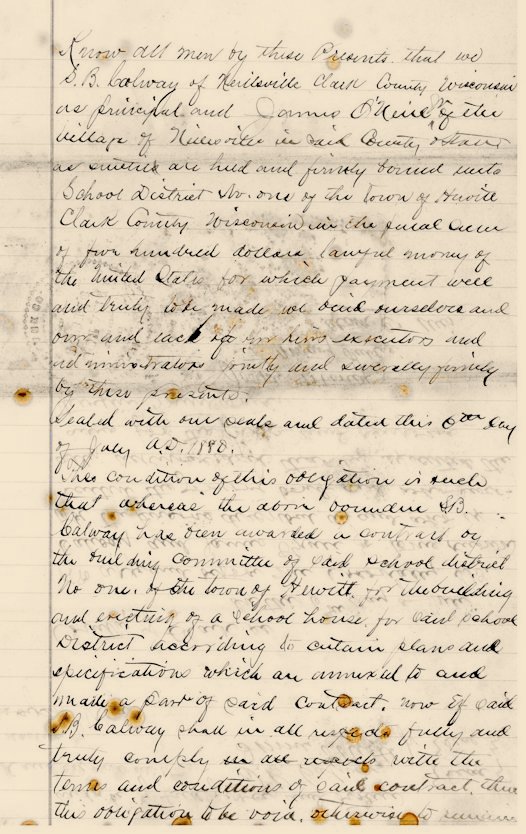 Know all men by these Presents. that we
S.B. Calway of Neillsville Clark County Wisconsin
as principal and James O'Neill of the
Village of Neillsville in said County & State
as sureties are held and firmly bound unto
School District No. one of the town of Hewitt
Clark County Wisconsin in the penal sum
of five hundred dollars lawful money of
the United States for which payment well
and truly to be made we bind ourselves and
our and each of our heirs executors and
administrators jointly and severally firmly
by these presents.
Sealed with our seals and dated this 6th day
of July A.D. 1880.
The condition of this obligation is such
that whereas the above bounden S.B.
Calway has been awarded a contract by
the building committee of said school district
No one. of the town of Hewitt for the building
and erecting of a school house for said school
District according to certain plans and
specifications which are annexed to and
made a part of said contract. now if said
S.B. Calway shall in all respects fully and
truly comply in all with the
terms and conditions of said contract, then
this obligation to be void. otherwise to remain